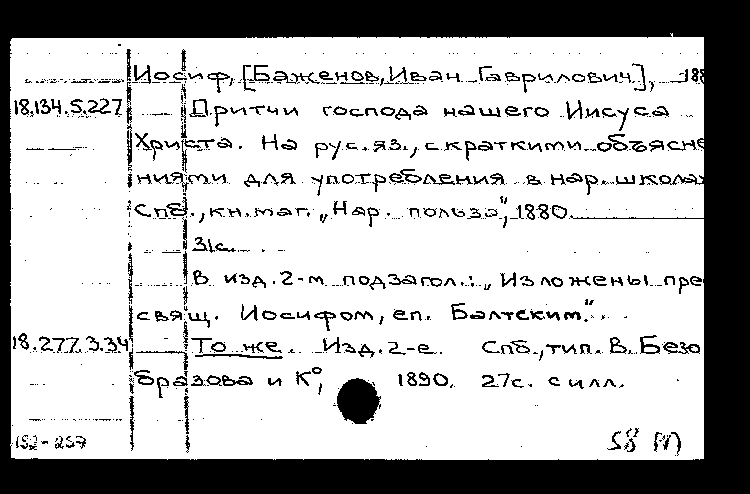 Иосиф, [Баженов, Иван Гаврилович], 188
18.134.5.227 Притчи господа нашего Иисуса
Христа. На рус. яз., с краткими объясне
ниями для употребления в нар. школах
Спб., кн. маг. „Нар. польза", 1880.
31с.
В изд. 2-м подзагол.: „Изложены пре
свящ. Иосифом, еп. Балтским."
18.277.3.34 То же. Изд. 2-е. Спб., тип. В. Безо
бразова и К°, 1890. 27с. с илл.
182-257 58